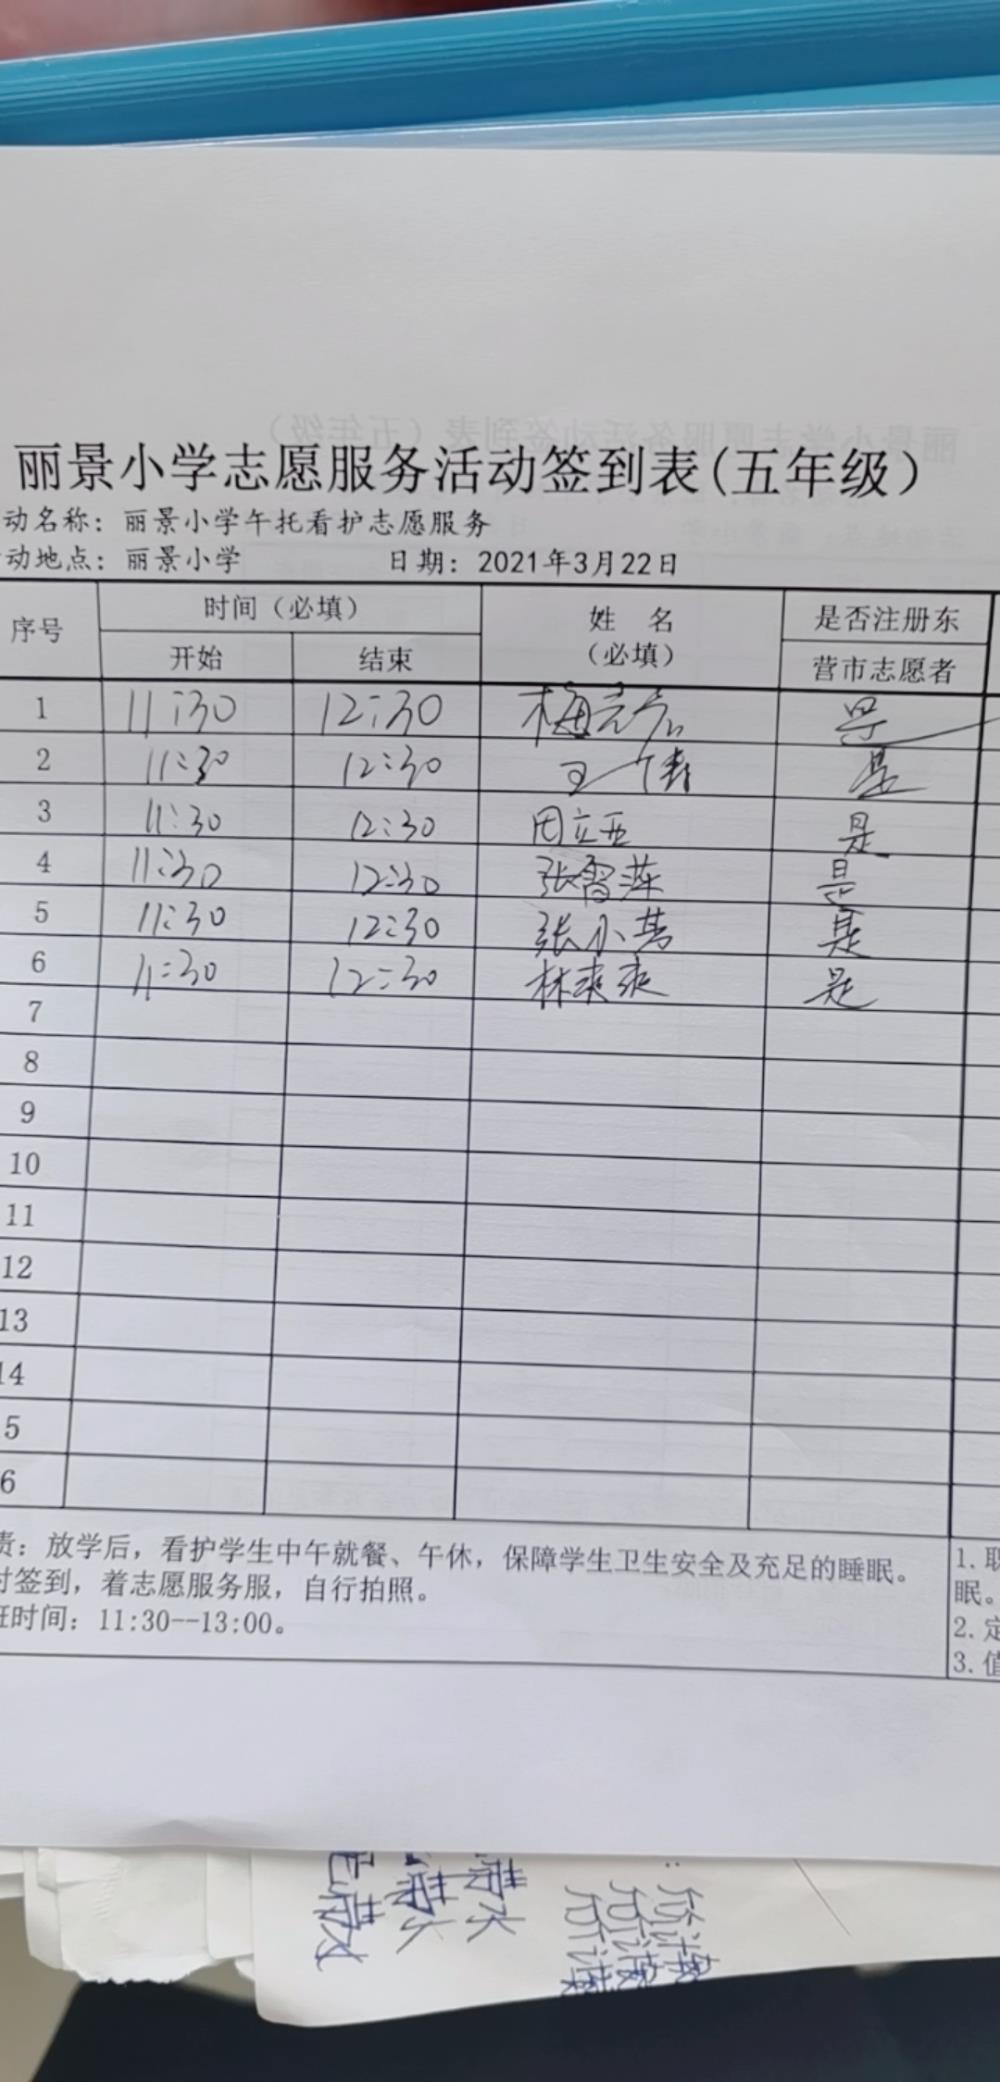 丽景小学志愿服务活动签到表(五年级)
动名称：丽景小学午托看护志愿服务
动地点：丽景小学 日期：2021年3月22日
序号 时间（必填） 姓 名 是否注册东
开始 结束 （必填） 营市志愿者
1 11:30 12:30 梅 是
2 11:30 12:30 王倩 是
3 11:30 12:30 田立亚 是
4 11:30 12:30 张雪萍 是
5 11:30 12:30 张小其 是
6 11:30 12:30 林爽爽 是
7
8
9
10
11
12
13
14
5
6
责：放学后，看护学生中午就餐、午休，保障学生卫生安全及充足的睡眠。
时签到，着志愿服务服，自行拍照。
班时间：11:30--13:00。
1.职
眠。
2.定
3.值